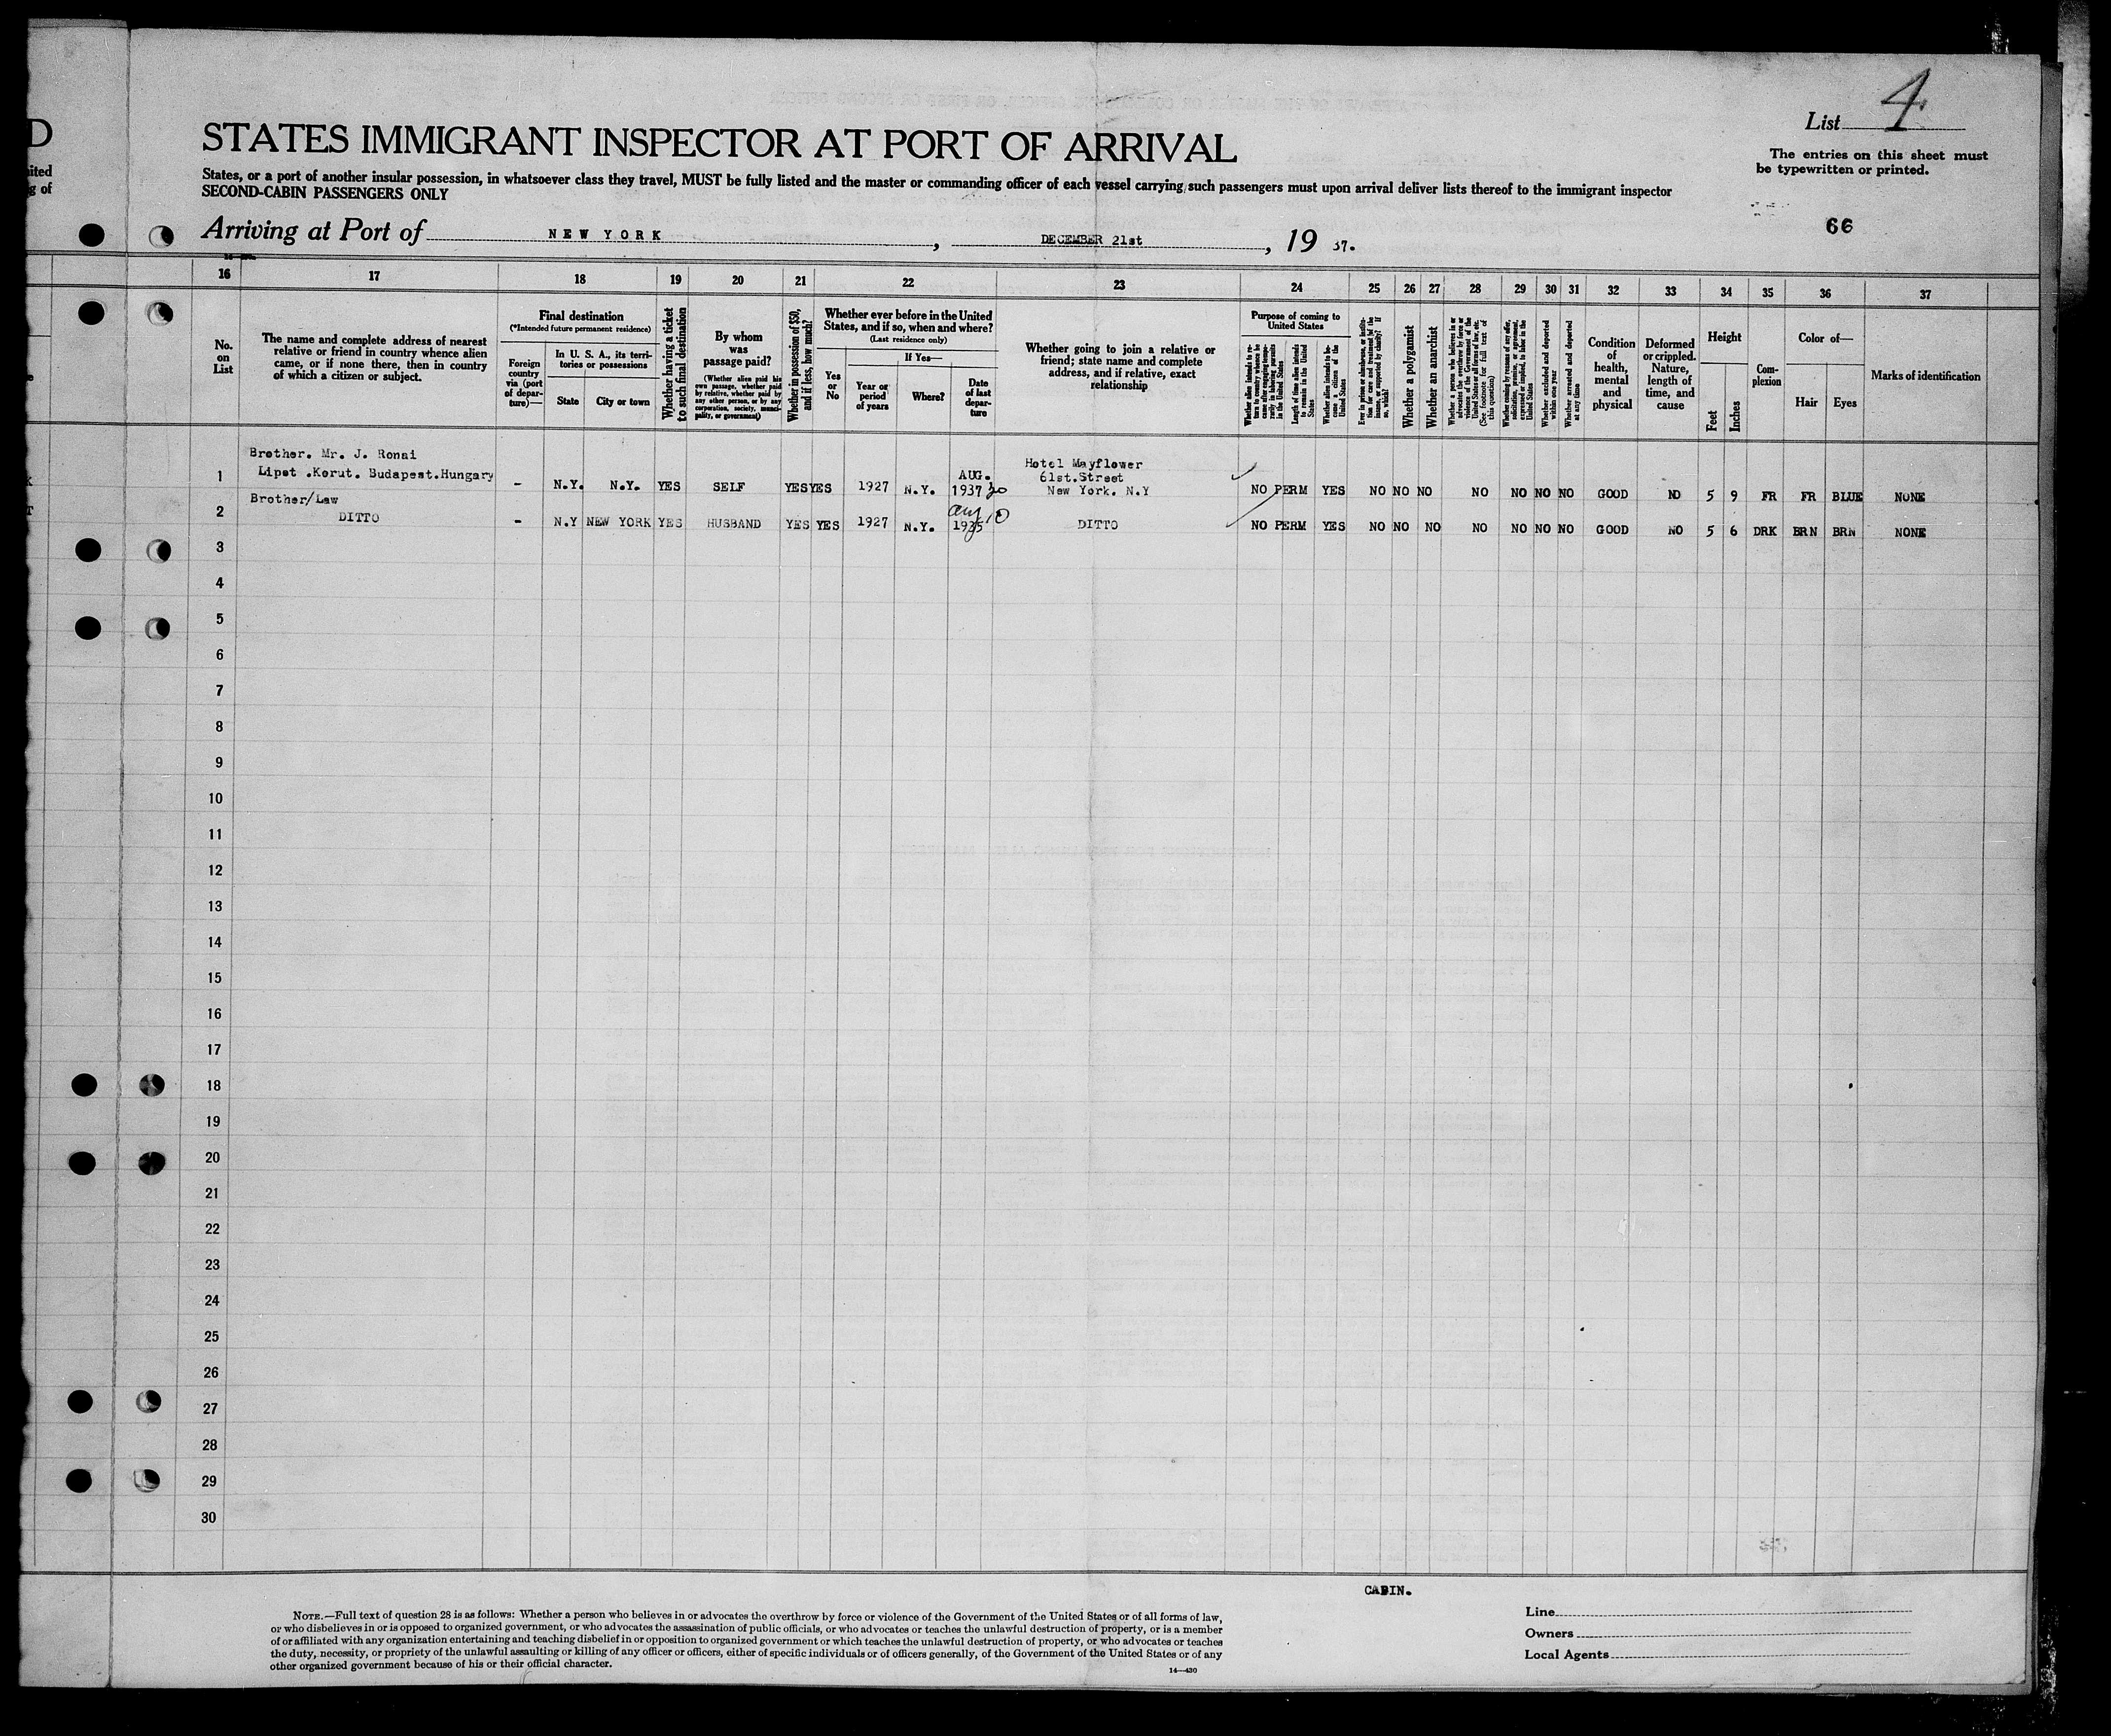 D
List 4
STATES IMMIGRANT INSPECTOR AT PORT OF ARRIVAL
The entries on this sheet must
be typewritten or printed.
ited
g of
States, or a port of another insular possession, in whatsoever class they travel, MUST be fully listed and the master or commanding officer of each vessel carrying such passengers must upon arrival deliver lists thereof to the immigrant inspector
SECOND-CABIN PASSENGERS ONLY
66
Arriving at Port of NEW YORK , DECEMBER 21st , 19 37.
16 17 18 19 20 21 22 23 24 25 26 27 28 29 30 31 32 33 34 35 36 37
No.
on
List
The name and complete address of nearest
relative or friend in country whence alien
came, or if none there, then in country
of which a citizen or subject.
Final destination
(*Intended future permanent residence)
Foreign
country
via (port
of depar-
ture)—
In U. S. A., its terri-
tories or possessions
State City or town
Whether having a ticket
to such final destination
By whom
was
passage paid?
(Whether alien paid his
own passage, whether paid
by relative, whether paid by
any other person, or by any
corporation, society, munici-
pality, or government)
Whether in possession of $50,
and if less, how much?
Whether ever before in the United
States, and if so, when and where?
(Last residence only)
Yes
or
No
If Yes—
Year or
period
of years
Where?
Date
of last
depar-
ture
Whether going to join a relative or
friend; state name and complete
address, and if relative, exact
relationship
Purpose of coming to
United States
Whether alien intends to re-
turn to country whence he
came after engaging tempo-
rarily in laboring pursuits
in the United States
Length of time alien intends
to remain in the United
States
Whether alien intends to be-
come a citizen of the
United States
Ever in prison or almshouse, or institu-
tion for care and treatment of the
insane, or supported by charity? If
so, which?
Whether a polygamist
Whether an anarchist
Whether a person who believes in or
advocates the overthrow by force or
violence of the Government of the
United States or all forms of law, etc.
(See footnote for full text of
this question)
Whether coming by reason of any offer,
solicitation, promise, or agreement,
expressed or implied, to labor in the
United States
Whether excluded and deported
within one year
Whether arrested and deported
at any time
Condition
of
health,
mental
and
physical
Deformed
or crippled.
Nature,
length of
time, and
cause
Height
Feet
Inches
Com-
plexion
Color of—
Hair Eyes
Marks of identification
Brother. Mr. J. Ronai
1 Lipot .Korut. Budapest.Hungary - N.Y. N.Y. YES SELF YES YES 1927 N.Y. AUG. 1937 20
Hotel Mayflower
61st.Street
New York. N.Y
NO PERM YES NO NO NO NO NO NO NO GOOD NO 5 9 FR FR BLUE NONE
Brother/Law
2 DITTO - N.Y NEW YORK YES HUSBAND YES YES 1927 N.Y. Aug 10 1935 DITTO NO PERM YES NO NO NO NO NO NO NO GOOD NO 5 6 DRK BRN BRN NONE
3
4
5
6
7
8
9
10
11
12
13
14
15
16
17
18
19
20
21
22
23
24
25
26
27
28
29
30
CABIN.
NOTE.—Full text of question 28 is as follows: Whether a person who believes in or advocates the overthrow by force or violence of the Government of the United States or of all forms of law,
or who disbelieves in or is opposed to organized government, or who advocates the assassination of public officials, or who advocates or teaches the unlawful destruction of property, or is a member
of or affiliated with any organization entertaining and teaching disbelief in or opposition to organized government or which teaches the unlawful destruction of property, or who advocates or teaches
the duty, necessity, or propriety of the unlawful assaulting or killing of any officer or officers, either of specific individuals or of officers generally, of the Government of the United States or of any
other organized government because of his or their official character.
14—430
Line
Owners
Local Agents